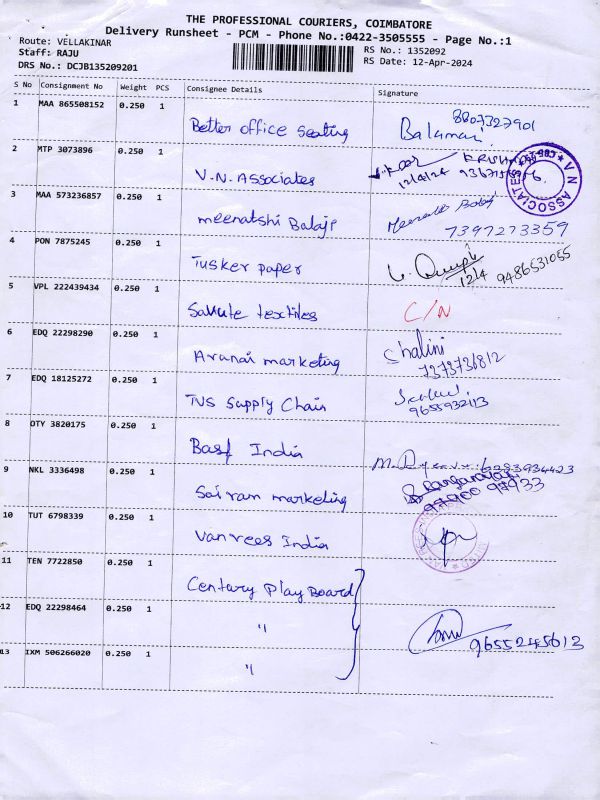 THE PROFESSIONAL COURIERS, COIMBATORE
Delivery Runsheet - PCM - Phone No.:0422-3505555 - Page No.:1
Route: VELLAKINAR
RS No.: 1352092
Staff: RAJU
RS Date: 12-Apr-2024
DRS No.: DCJB135209201
S No Consignment No Weight PCS Consignee Details Signature
1 MAA 865508152 0.250 1 Better office Seating Balamani 8807327901
2 MTP 3073896 0.250 1 V.N. Associates 12/4/24
V N ASSOCIATES
3 MAA 573236857 0.250 1 meenatshi Balaji Meenakshi Balaji 7397273359
4 PON 7875245 0.250 1 Tusker paper 12/4 9486531055
5 VPL 222439434 0.250 1 Salute textiles C/N
6 EDQ 22298290 0.250 1 Arunai marketing Shalini 7373736812
7 EDQ 18125272 0.250 1 TVS Supply Chain 9655932113
8 OTY 3820175 0.250 1 Basf India 6283934423
9 NKL 3336498 0.250 1 Sai ram marketing Rangarajan 97900 97933
10 TUT 6798339 0.250 1 Vanrees India
11 TEN 7722850 0.250 1 Century Play Board
12 EDQ 22298464 0.250 1 " 9655245613
13 IXM 506266020 0.250 1 "